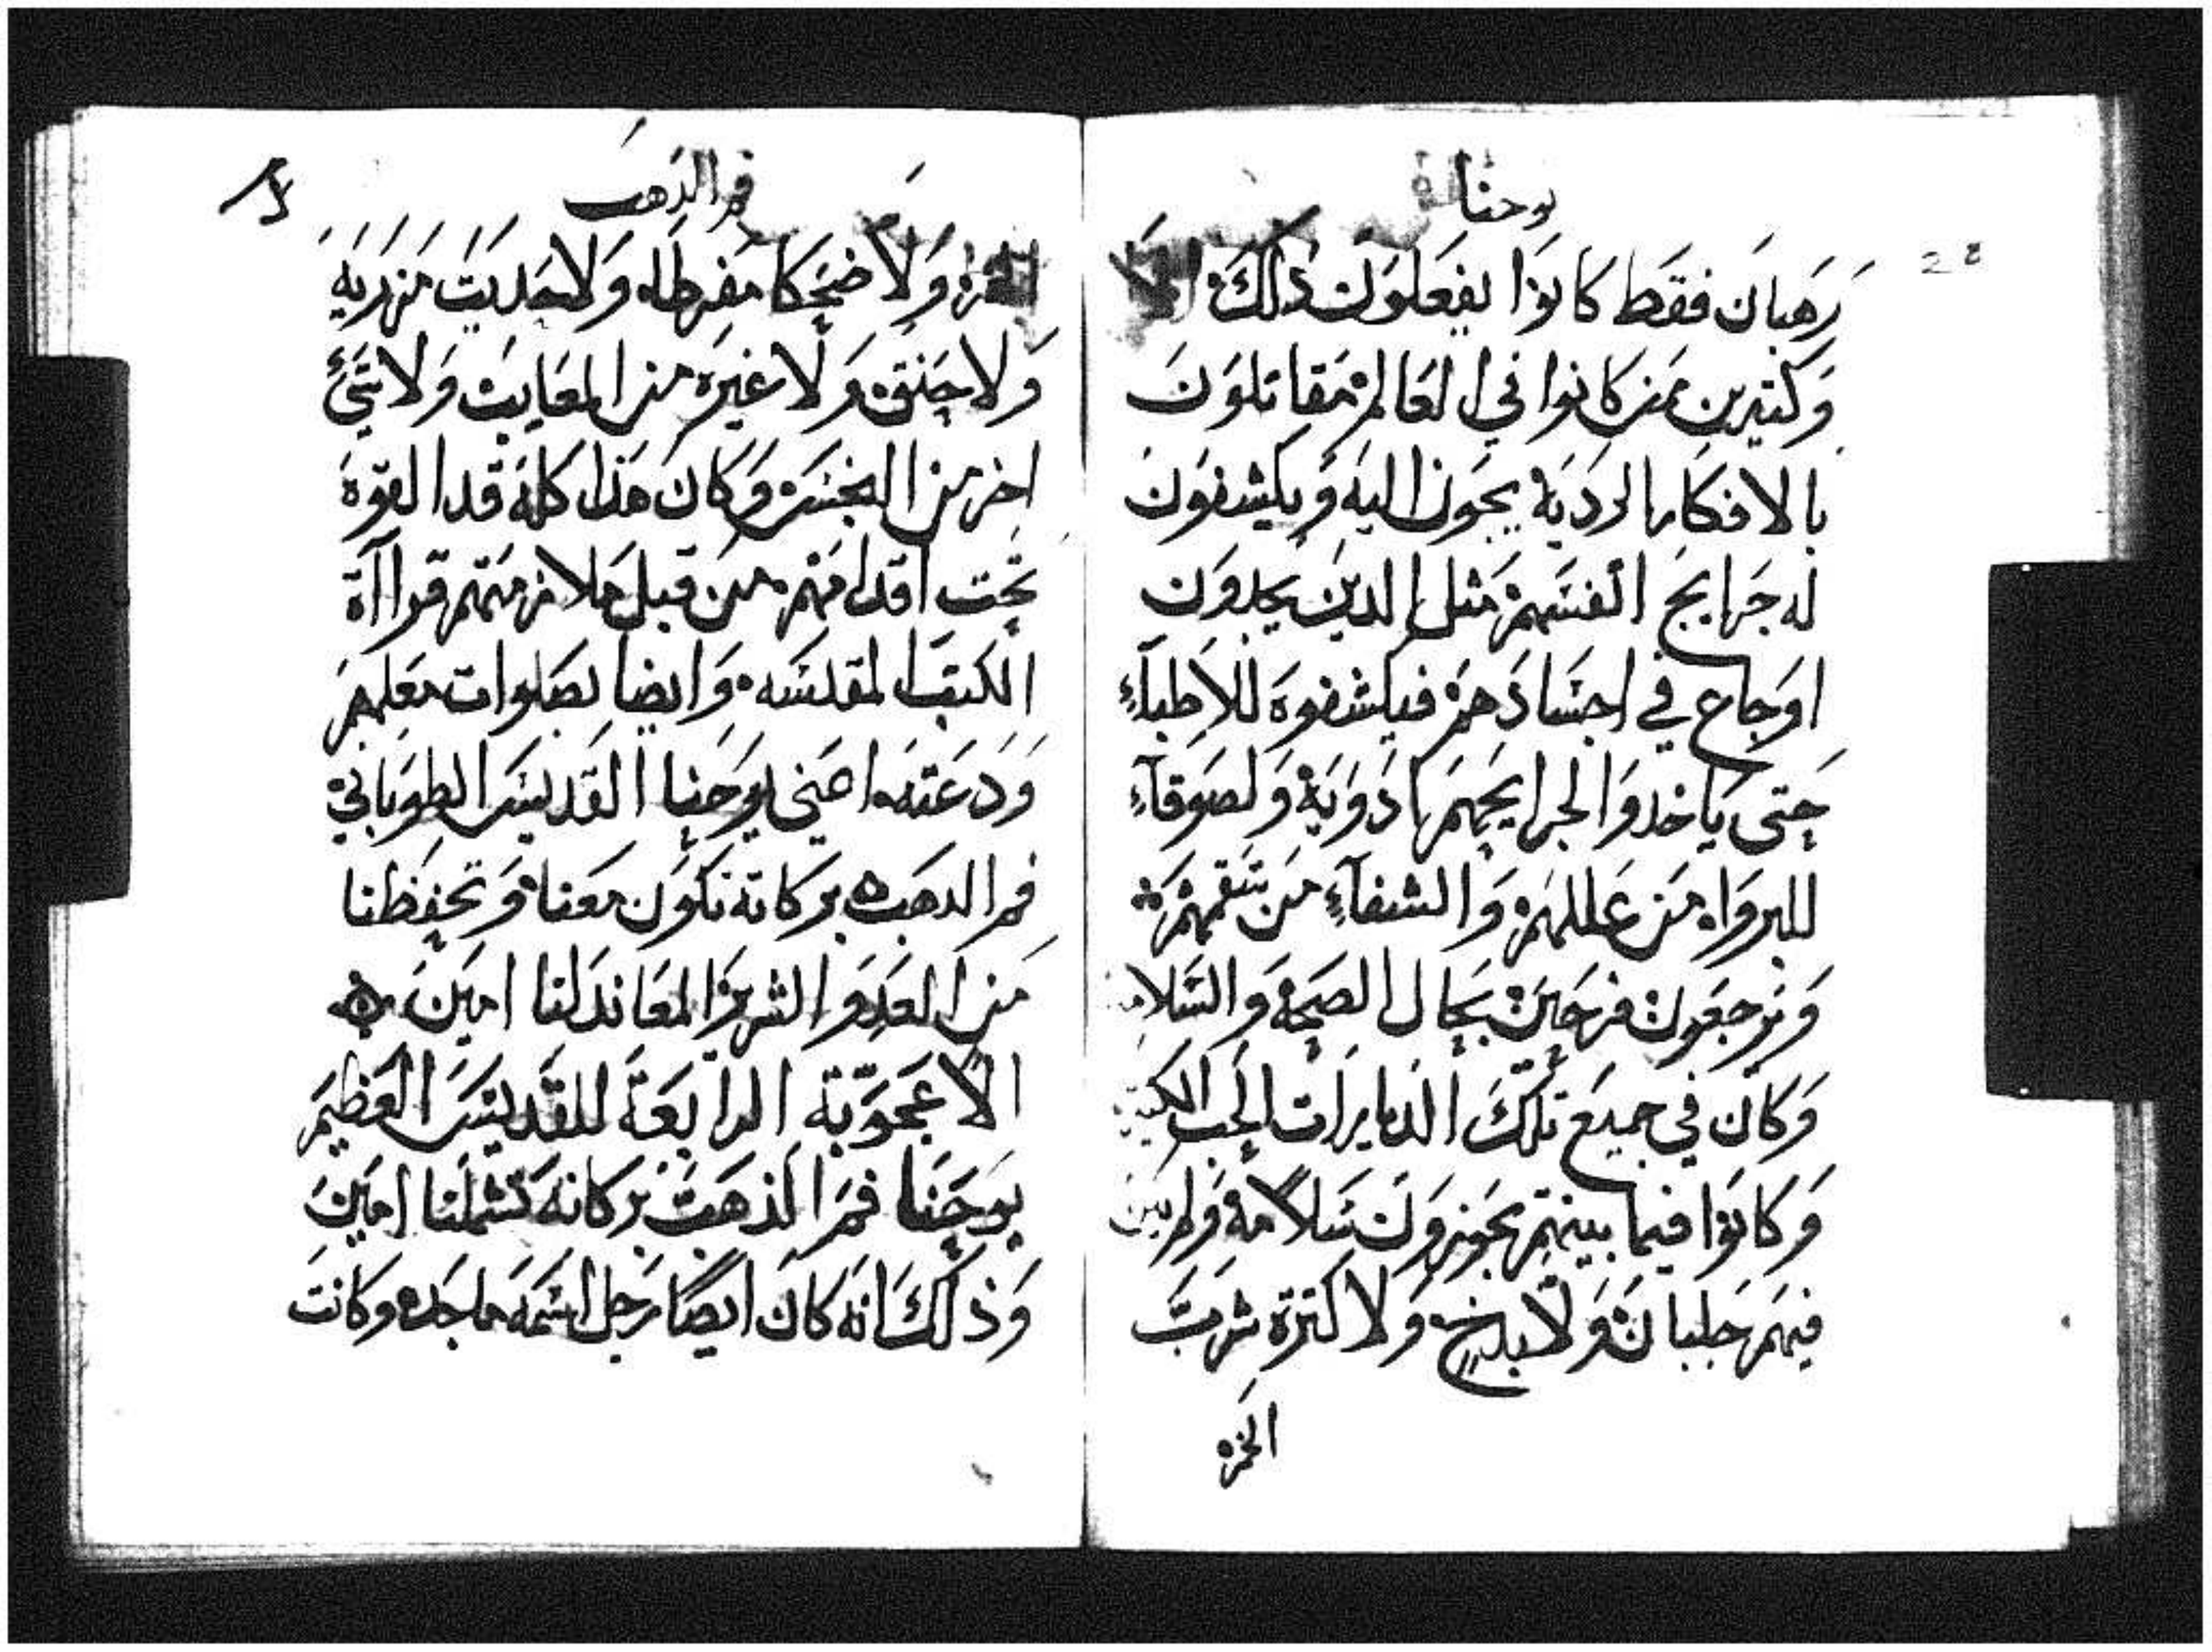 يوحنا
28
رهبان فقط كانوا يفعلون ذلك الا
وكتيرين ممن كانوا في العالم مقاتلون
بالافكار الرديه يجون اليه ويكشفون
له جرايح انفسهم مثل الدين يجدون
اوجاع في اجسادهم فيكشفوه للاطباء
حتى ياخدوا لجرايحهم ادويه ولصوقاء
للبرواه من عللهم والشفاء من سقمهم
ويرجعون فرحين بحال الصحه والسلامه
وكان في جميع تلك الدايرات الحب الكتير
وكانوا فيما بينهم يجوزون سلامه ولم يبن
فيهم جلبان ولا بدخ ولا كترة شرب
الخمر
فم الذهب
الخمر ولا ضحكا مفرطا ولا حديت من ريه
ولا حنق ولا غيره من المعايب ولا شي
اخر من النجس وكان هذا كله قد القوه
تحت اقدامهم من قبل ملازمتهم قراآة
الكتب المقدسه وايضا بصلوات معلمهم
ودعته اعني يوحنا القديس الطوباني
فم الدهب بركاته تكون معنا وتحفظنا
من العدو الشرير المعاند لنا امين
الاعجوبة الرابعة للقديس العظيم
يوحنا فم الذهب بركاته تشملنا امين
وذلك انه كان ايضا رجل اسمه ماجده وكانت